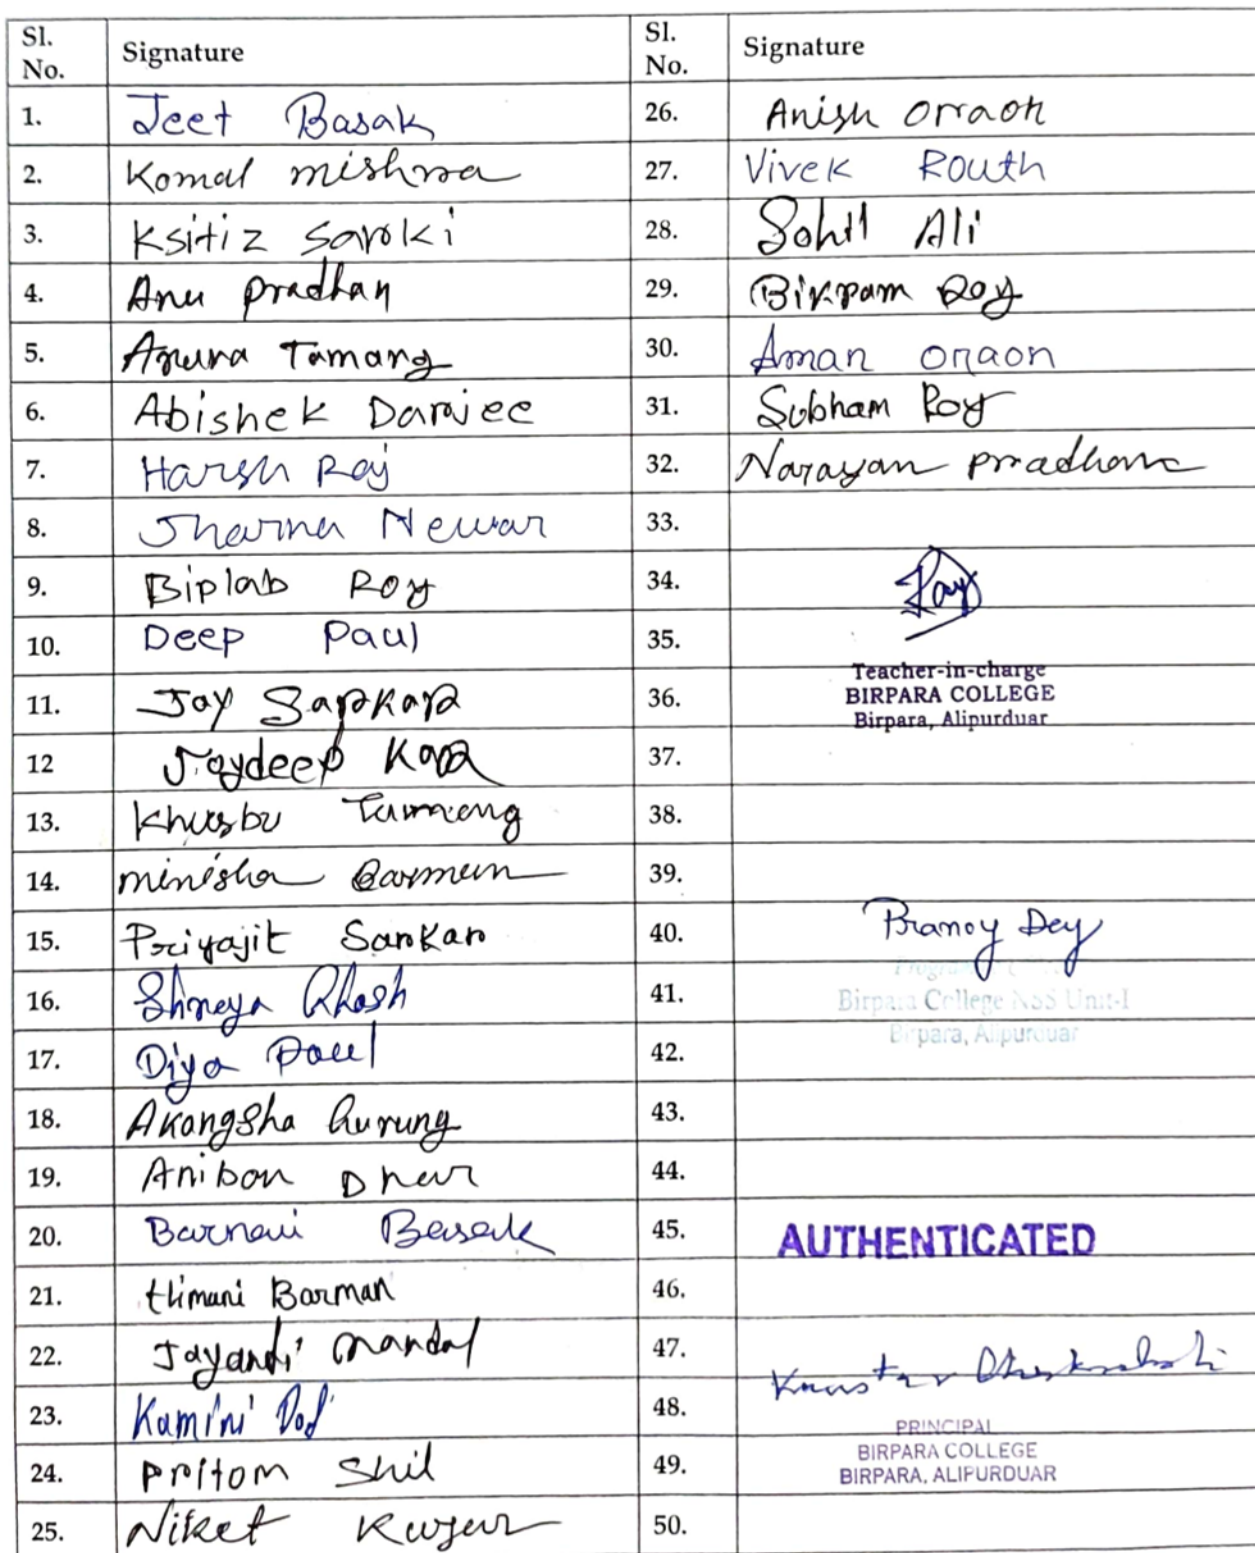 Sl. No. Signature Sl. No. Signature
1. Jeet Basak 26. Anish Orraon
2. Komal mishra 27. Vivek Routh
3. Ksitiz Sarki 28. Sohil Ali
4. Anu pradhan 29. Bikram Roy
5. Tamang 30. Aman oraon
6. Abishek Darjee 31. Subham Roy
7. Harsh Raj 32. Narayan pradhan
8. Jharna Newar 33.
9. Biplab Roy 34.
10. Deep Paul 35.
Teacher-in-charge
11. Joy Sarkar 36. BIRPARA COLLEGE
Birpara, Alipurduar
12 Joydeep Kar 37.
13. Khusbu Tamang 38.
14. minisha Barman 39.
15. Priyajit Sarkar 40. Pranoy Dey
16. Shreya Ghosh 41. Birpara College NSS Unit-I
Birpara, Alipurduar
17. Diya Paul 42.
18. Akangsha Gurung 43.
19. Anibon Dhar 44.
20. Barnali Basak 45. AUTHENTICATED
21. Himani Barman 46.
22. Jayanti Mandal 47.
23. Kamini 48.
PRINCIPAL
BIRPARA COLLEGE
24. Pritom Shil 49. BIRPARA, ALIPURDUAR
25. Niket Kujur 50.